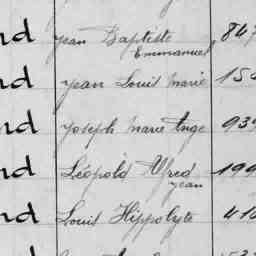 nd Jean Baptiste 847
Emmanuel
nd Jean Louis Marie 154
nd Joseph Marie Ange 939
nd Léopold Alfred 199
Jean
nd Louis Hippolyte 416